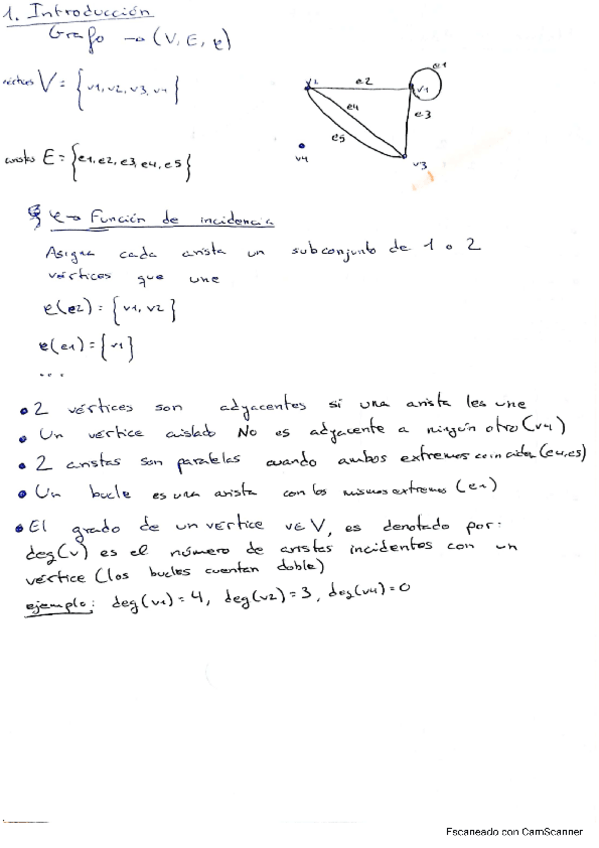 1. Introducción
Grafo → (V, E, e)
vértices V = {v1, v2, v3, v4}
e1
v2 e2 v1
e4 e3
e5
v4 v3
aristas E = {e1, e2, e3, e4, e5}
e → Función de incidencia
Asigna cada arista un subconjunto de 1 o 2
vértices que une
e(e2) = {v1, v2}
e(e1) = {v1}
...
• 2 vértices son adyacentes si una arista les une
• Un vértice aislado No es adyacente a ningún otro (v4)
• 2 aristas son paralelas cuando ambos extremos coinciden (e4, e5)
• Un bucle es una arista con los mismos extremos (e1)
• El grado de un vértice v∈V, es denotado por:
deg(v) es el número de aristas incidentes con un
vértice (los bucles cuentan doble)
ejemplo: deg(v1) = 4, deg(v2) = 3, deg(v4) = 0
Escaneado con CamScanner